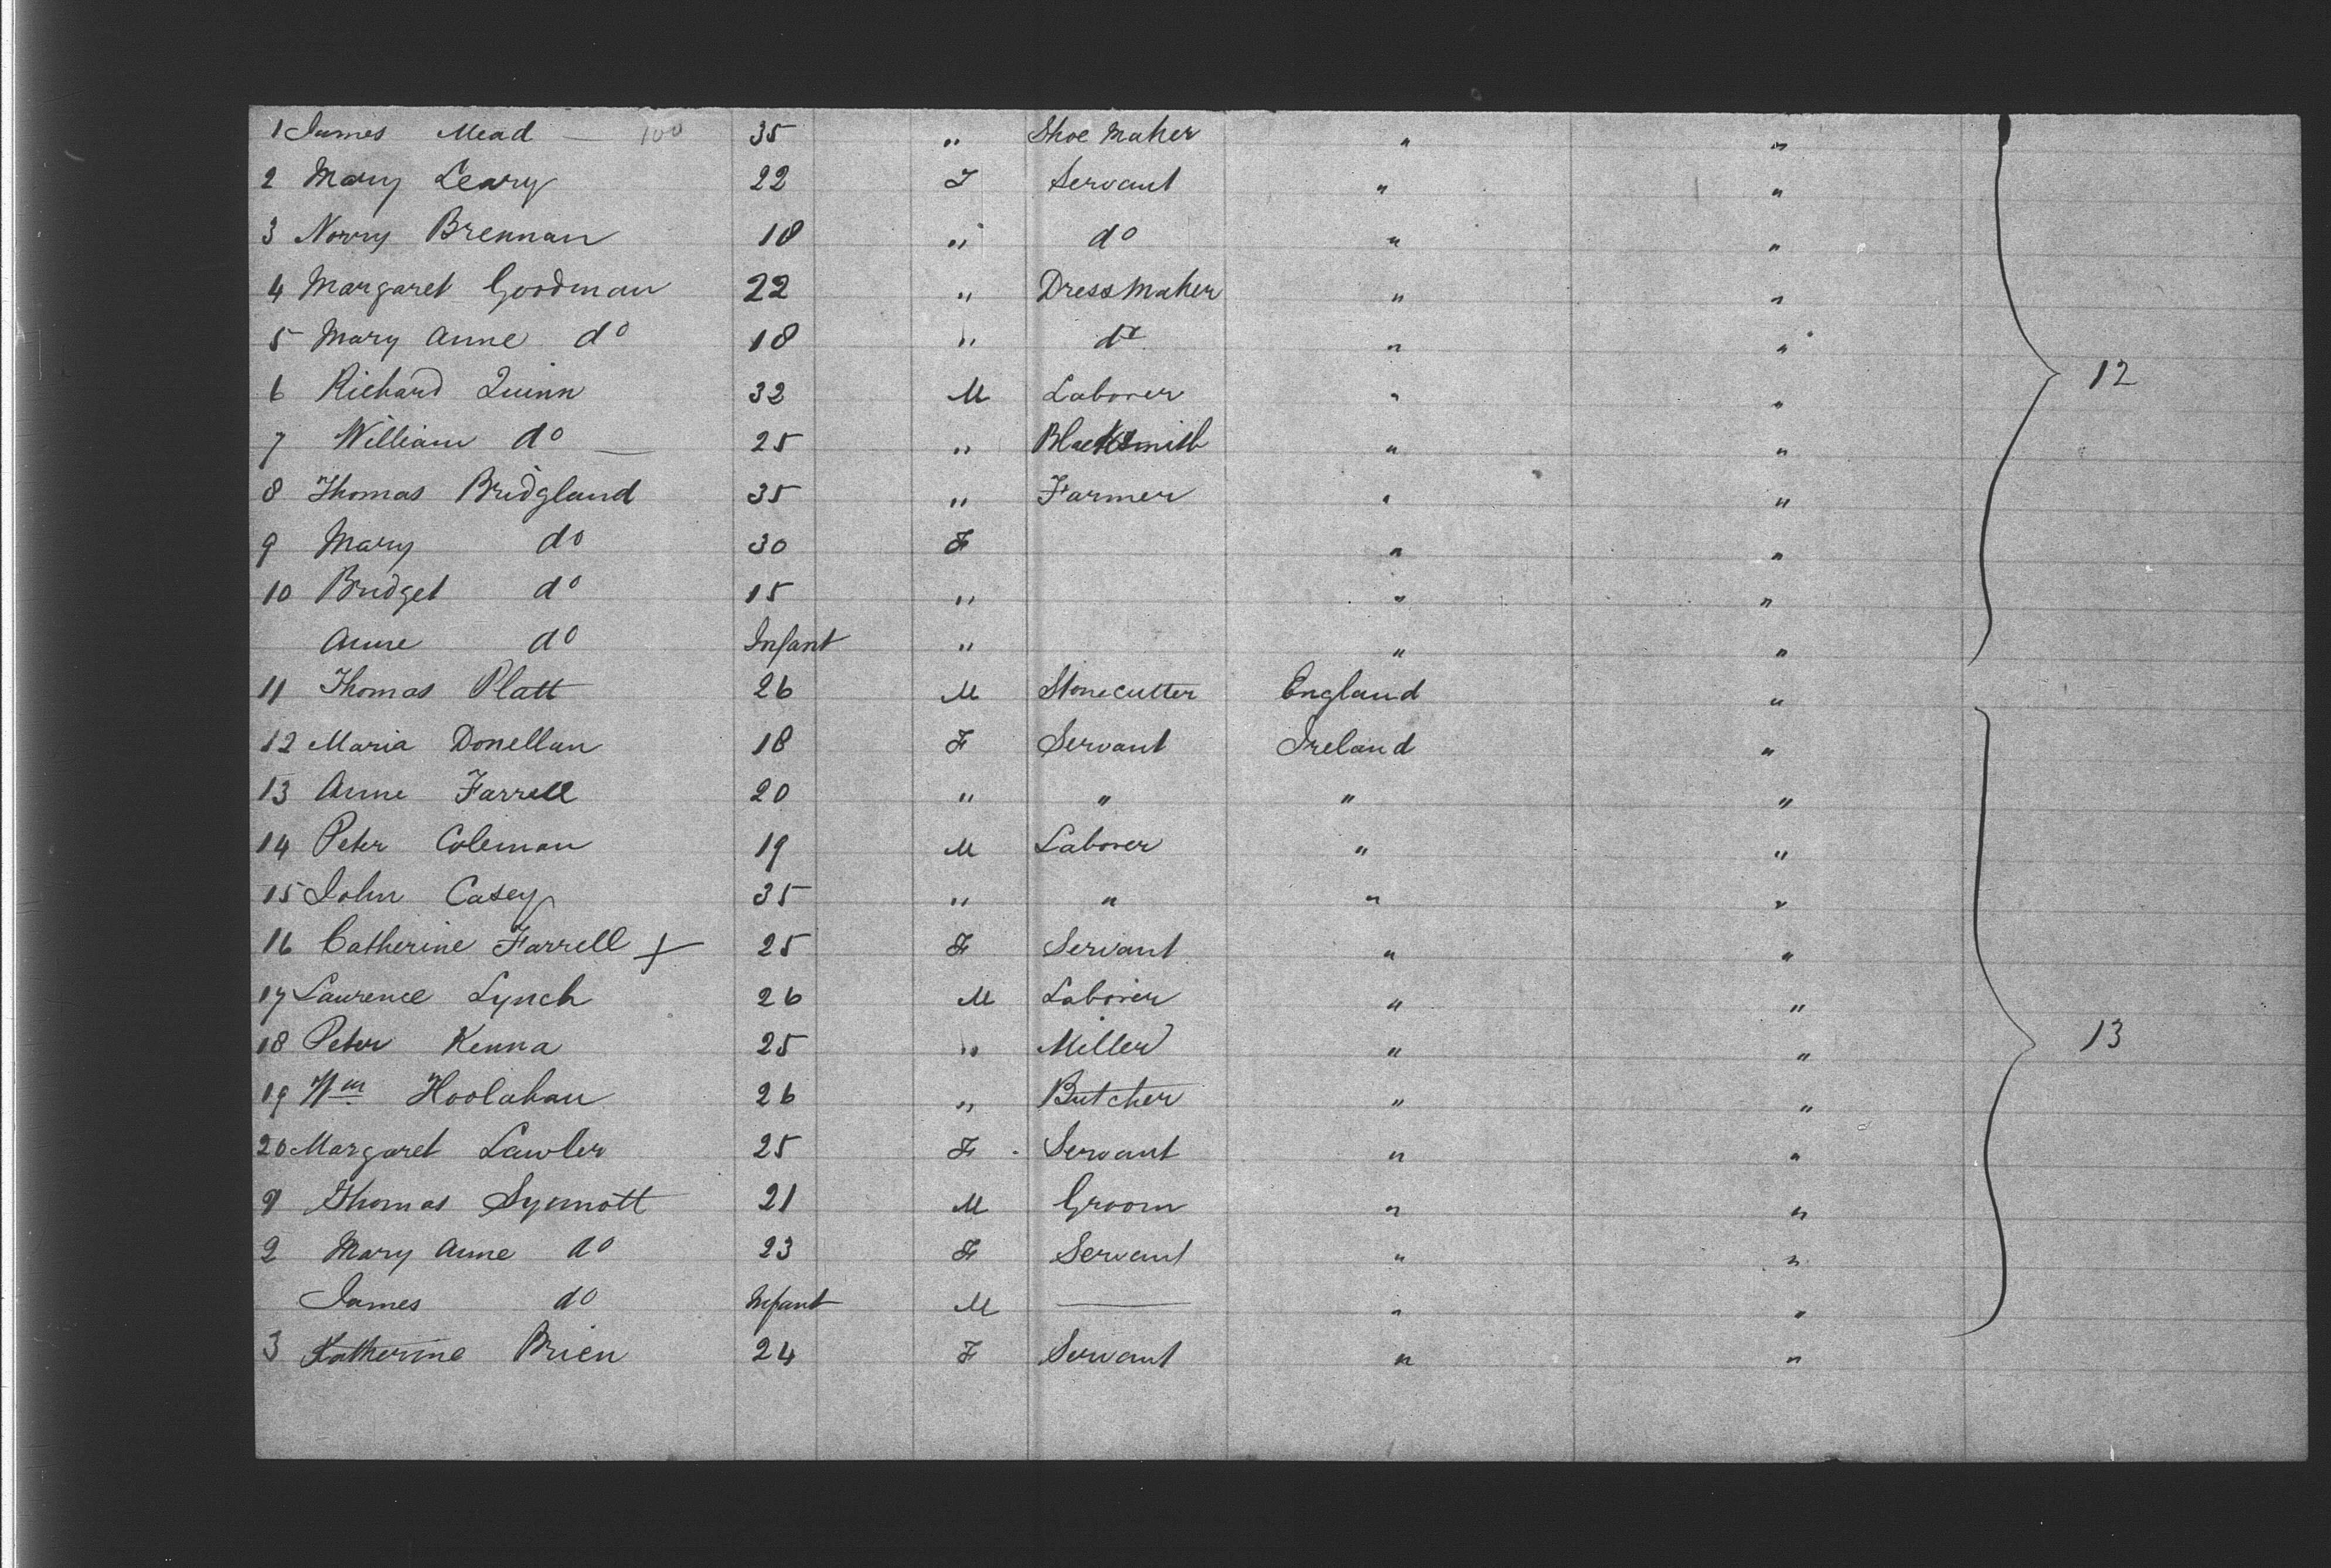 1 James Mead — 100 35 " Shoe Maker " "
2 Mary Leary 22 F Servant " "
3 Norry Brennan 18 " do " "
4 Margaret Goodman 22 " Dress Maker " "
5 Mary Anne do 18 " do " "
6 Richard Quinn 32 M Laborer " " 12
7 William do — 25 " Blacksmith " "
8 Thomas Bridgland 35 " Farmer " "
9 Mary do 30 F " "
10 Bridget do 15 " " "
Anne do Infant " " "
11 Thomas Platt 26 M Stonecutter England "
12 Maria Donellan 18 F Servant Ireland "
13 Anne Farrell 20 " " " "
14 Peter Coleman 19 M Laborer " "
15 John Casey 35 " " " "
16 Catherine Farrell + 25 F Servant " "
17 Laurence Lynch 26 M Laborer " "
18 Peter Kenna 25 " Miller " " 13
19 Wm Hoolahan 26 " Butcher " "
20 Margaret Lawler 25 F Servant " "
1 Thomas Synnott 21 M Groom " "
2 Mary Anne do 23 F Servant " "
James do Infant M — " "
3 Katherine Brien 24 F Servant " "